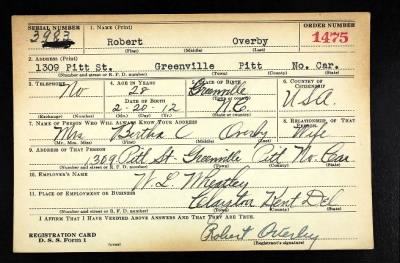 SERIAL NUMBER 1. NAME (Print) ORDER NUMBER
3983 Robert Overby 1475
(First) (Middle) (Last)
2. ADDRESS (Print)
1309 Pitt St. Greenville Pitt No. Car.
(Number and street or R. F. D. number) (Town) (County) (State)
3. TELEPHONE 4. AGE IN YEARS 5. PLACE OF BIRTH 6. COUNTRY OF CITIZENSHIP
No 28 Greenville
DATE OF BIRTH (Town or county) USA
2-20-12 N.C.
(Exchange) (Number) (Mo.) (Day) (Yr.) (State or country)
7. NAME OF PERSON WHO WILL ALWAYS KNOW YOUR ADDRESS 8. RELATIONSHIP OF THAT PERSON
Mrs Bertha C Overby Wife
(Mr., Mrs., Miss) (First) (Middle) (Last)
9. ADDRESS OF THAT PERSON
1309 Pitt St- Greenville Pitt No. Car
(Number and street or R. F. D. number) (Town) (County) (State)
10. EMPLOYER'S NAME
W L Wheatley
11. PLACE OF EMPLOYMENT OR BUSINESS
Clayton Kent Del
(Number and street or R. F. D. number) (Town) (County) (State)
I AFFIRM THAT I HAVE VERIFIED ABOVE ANSWERS AND THAT THEY ARE TRUE.
REGISTRATION CARD
D. S. S. Form 1
Robert Overby
(Registrant's signature)